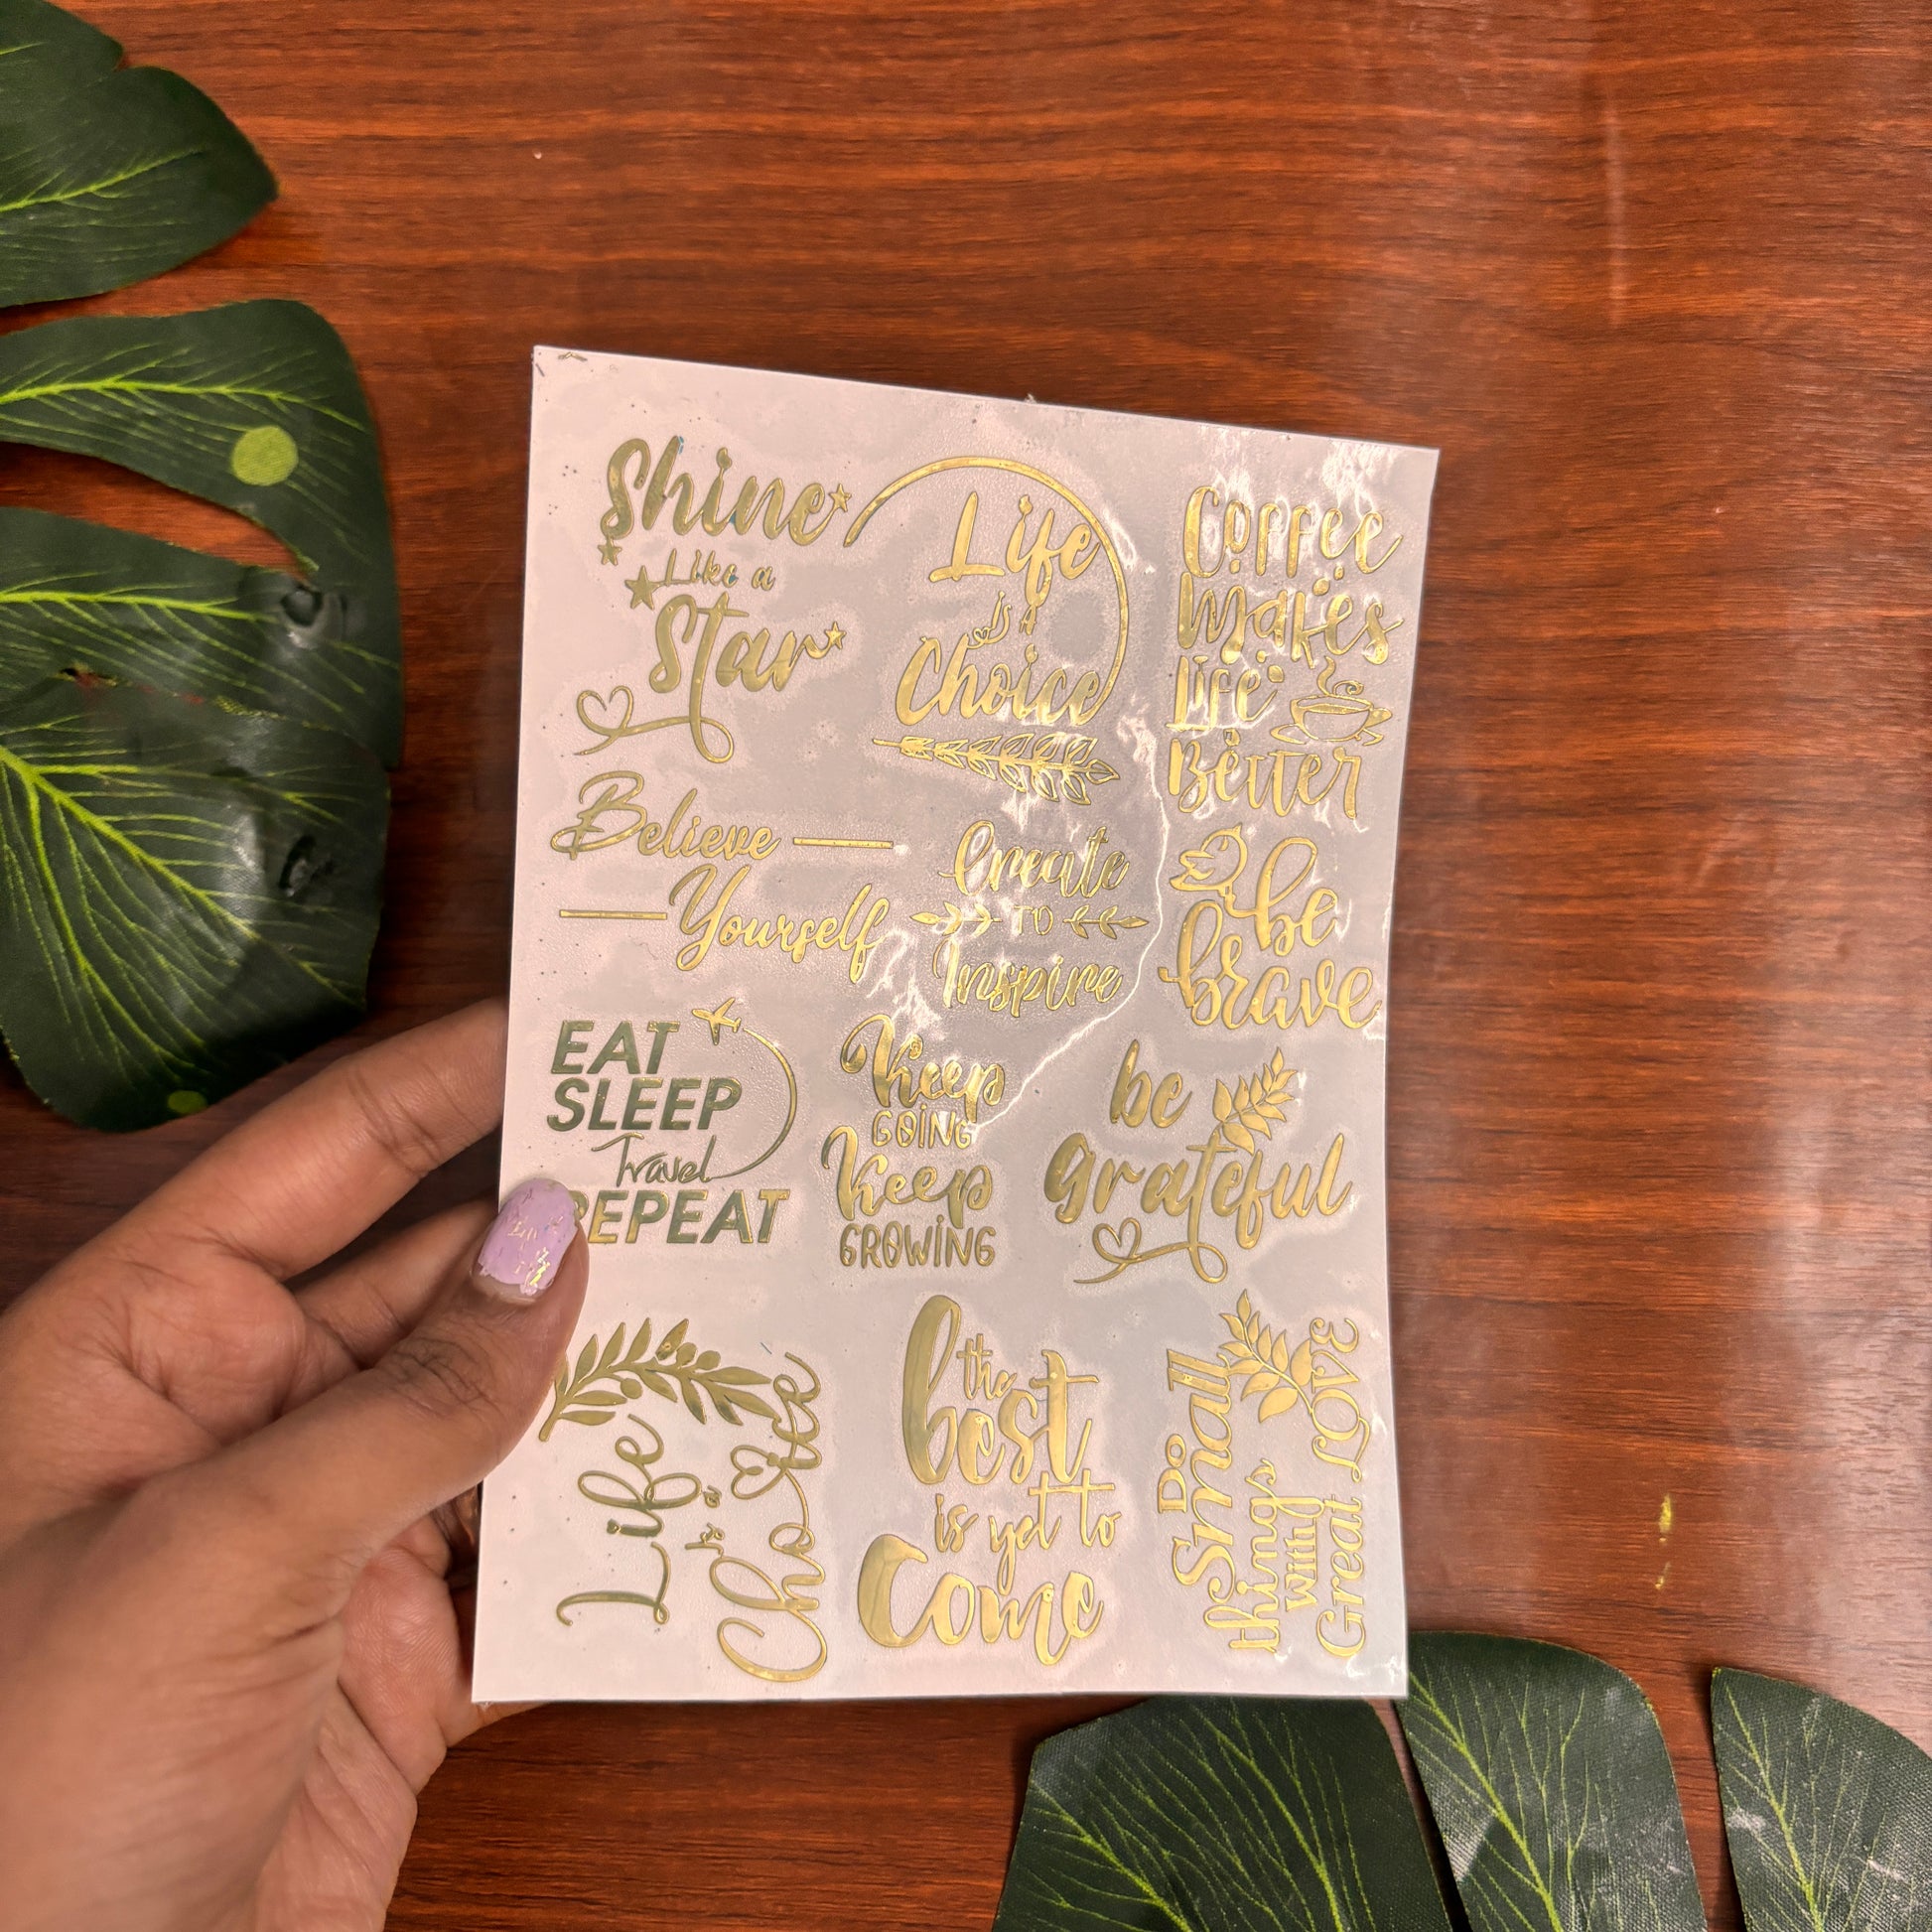 Shine
Like a
Star
Life
is A
Choice
Coffee
Makes
Life
Better
Believe
Yourself
Create
TO
Inspire
be
brave
EAT
SLEEP
Travel
REPEAT
Keep
GOING
Keep
GROWING
be
grateful
Life
is a
Choice
the
best
is yet to
Come
Do
Small
things
with
Great LOVE